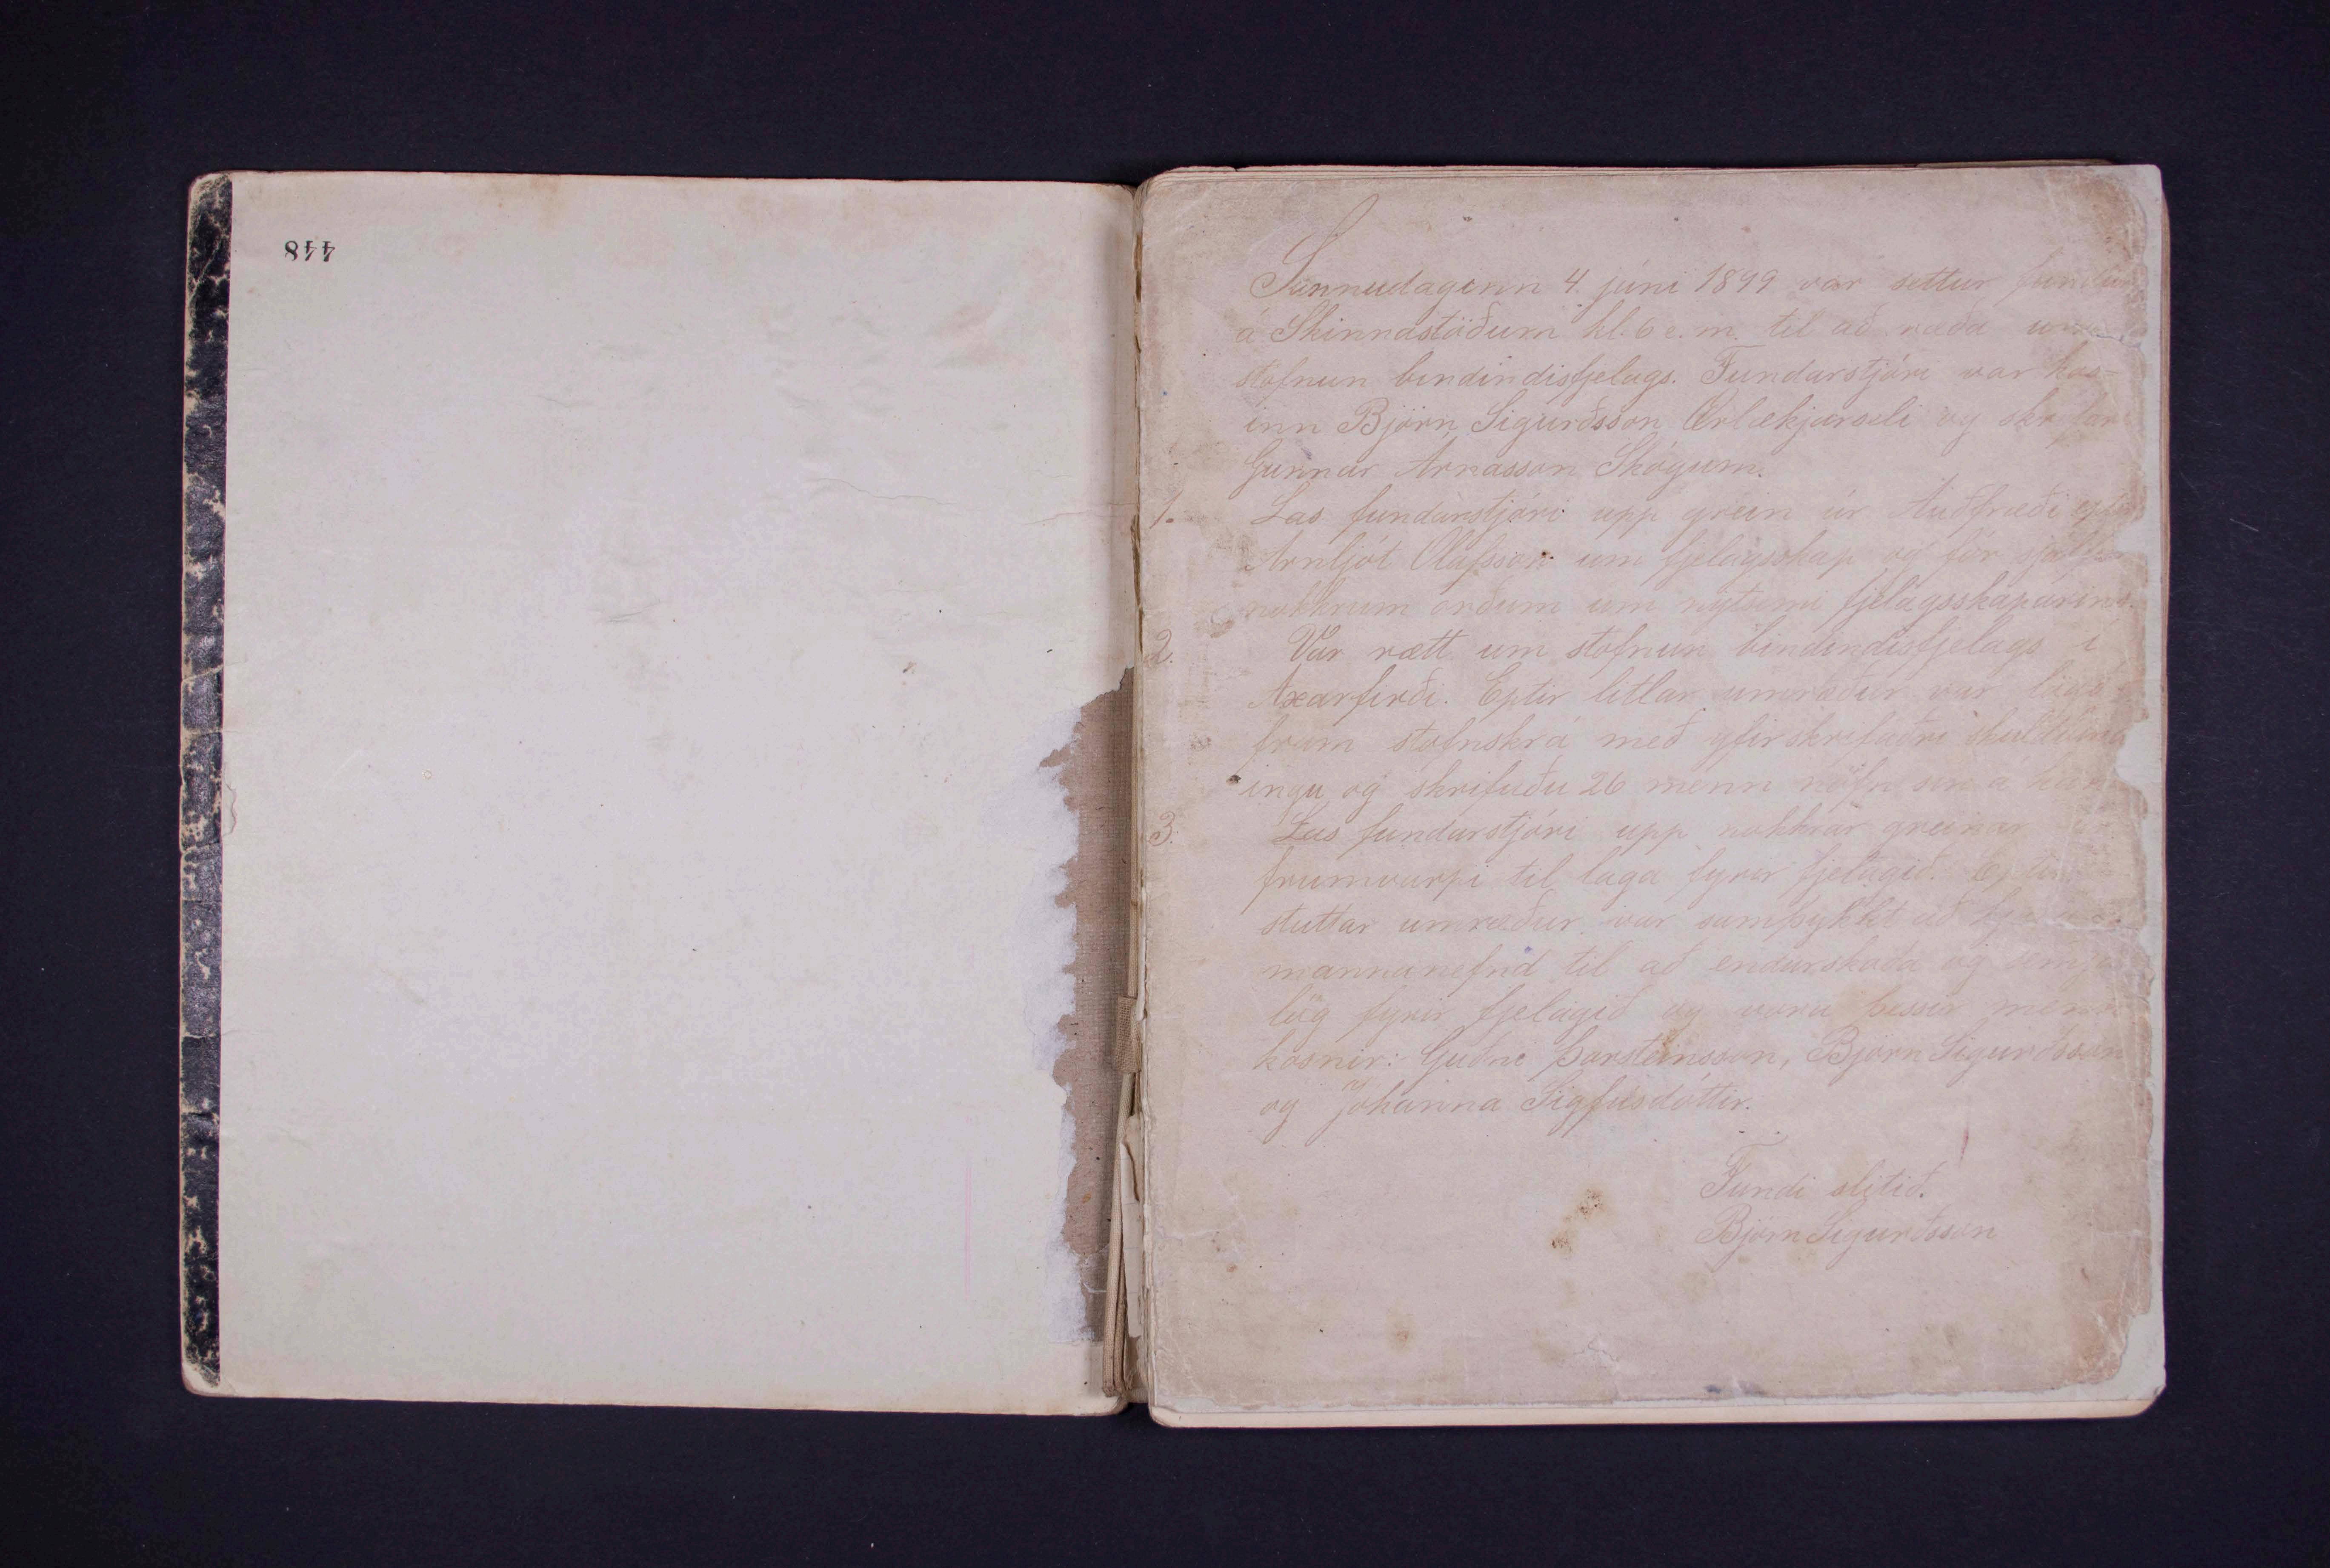 448
Sunnudaginn 4. júní 1899 var settur fundur
á Skinnastöðum kl. 6 e. m. til að ræða um
stofnun bindindisfjelags. Fundarstjóri var kos-
inn Björn Sigurðsson Ærlækjarseli og skrifari
Gunnar Árnasson Skógum.
1. Las fundarstjóri upp grein úr Auðfræði eptir
Arnljót Ólafsson um fjelagsskap og fór
nokkrum orðum um nytsemi fjelagsskaparins.
2. Var rætt um stofnun bindindisfjelags í
Axarfirði. Eptir litlar umræður var lögð
fram stofnskrá með yfirskrifaðri skuldbind
ingu og skrifuðu 26 menn nöfn sín á hana
3. Las fundarstjóri upp nokkrar greinar úr
frumvarpi til laga fyrir fjelagið. Eptir
stuttar umræður var samþykkt að
mannanefnd til að endurskoða og semja
lög fyrir fjelagið og voru þessir menn
kosnir: Guðni Þorsteinsson, Björn Sigurðsson
og Jóhanna Sigfúsdóttir.
Fundi slitið.
Björn Sigurðsson